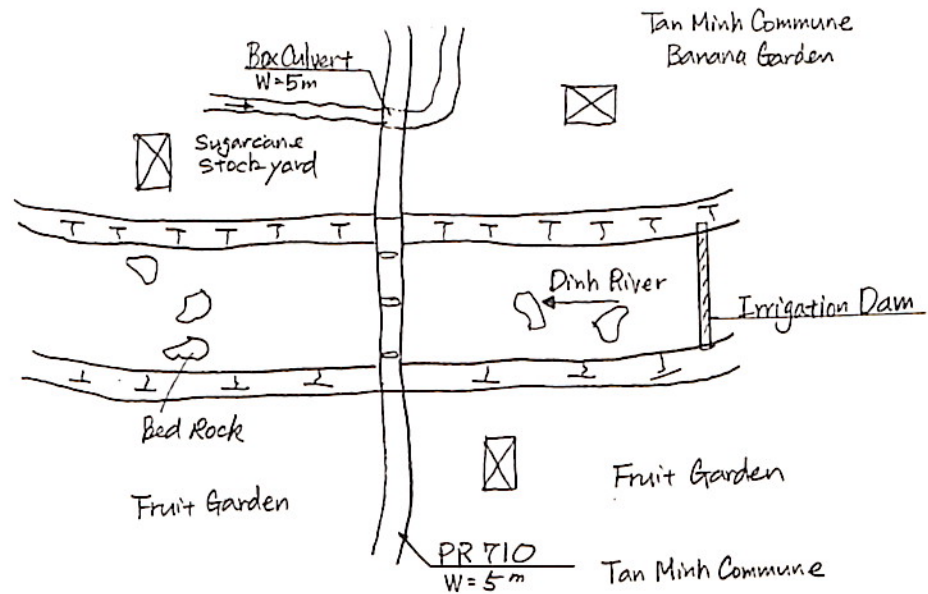 Tan Minh Commune
Banana Garden
Box Culvert
W=5m
Sugarcane
Stock yard
Dinh River
Irrigation Dam
Bed Rock
Fruit Garden
Fruit Garden
PR 710
W=5m
Tan Minh Commune